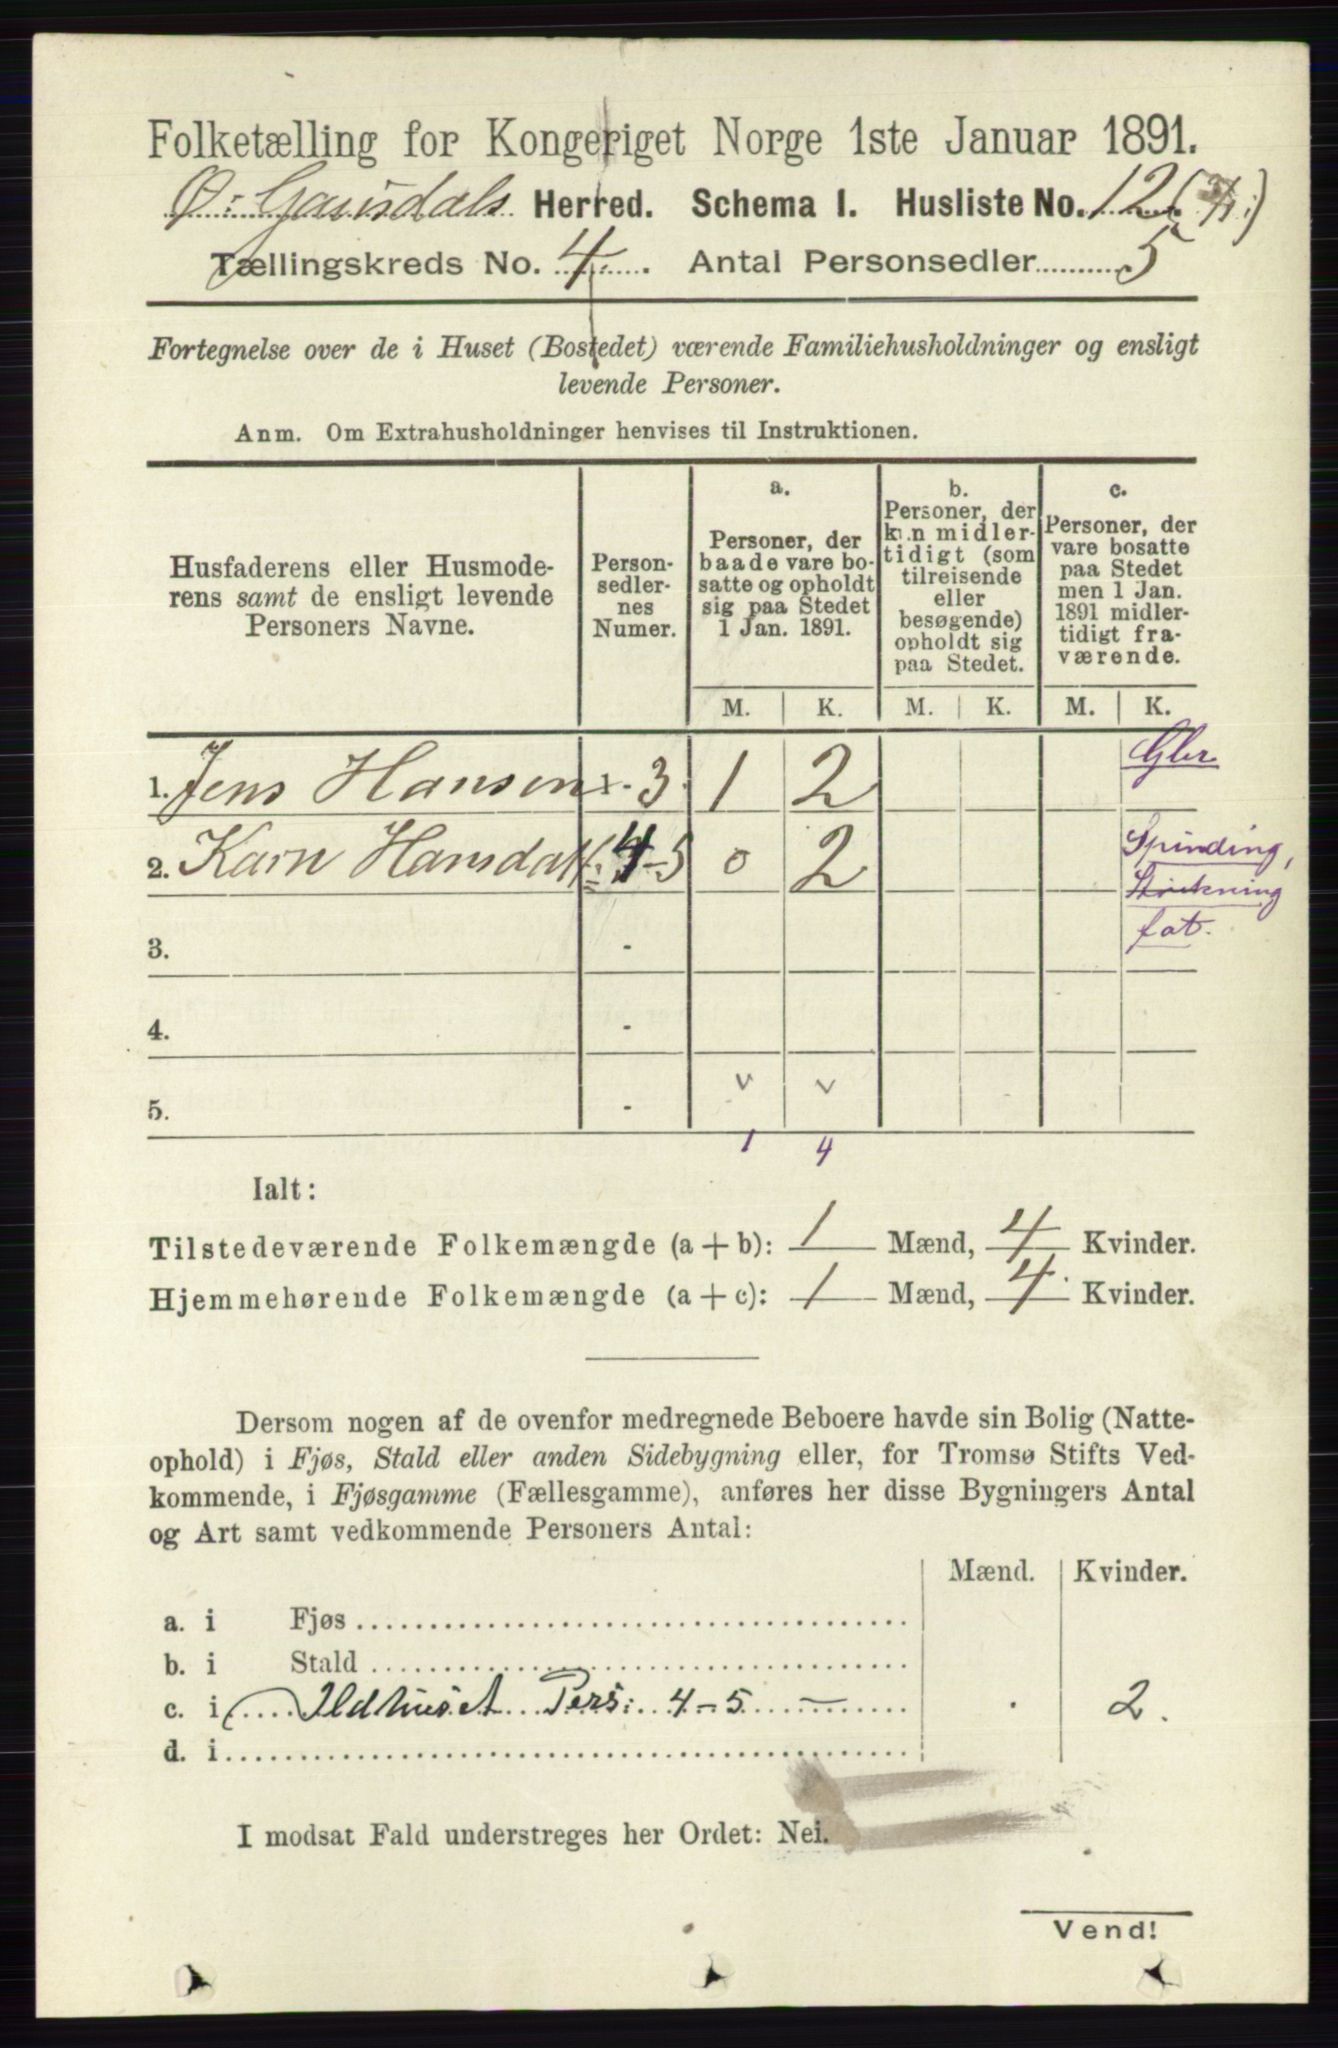 Folketælling for Kongeriget Norge 1ste Januar 1891.
Ø: Gausdals Herred. Schema I. Husliste No. 12
Tællingskreds No. 4. Antal Personsedler 5
Fortegnelse over de i Huset (Bostedet) værende Familiehusholdninger og ensligt
levende Personer.
Anm. Om Extrahusholdninger henvises til Instruktionen.
Husfaderens eller Husmode-
rens samt de ensligt levende
Personers Navne.
Person-
sedler-
nes
Numer.
a.
Personer, der
baade vare bo-
satte og opholdt
sig paa Stedet
1 Jan. 1891.
b.
Personer, der
kun midler-
tidigt (som
tilreisende
eller
besøgende)
opholdt sig
paa Stedet.
c.
Personer, der
vare bosatte
paa Stedet
men 1 Jan.
1891 midler-
tidigt fra-
værende.
M. K. M. K. M. K.
1. Jens Hansen 1 - 3 1 2 Gbr
2. Karn Hansdatt. 4-5 0 2 Spinding,
Strikning
fat.
3. -
4. -
5. - v v
1 4
Ialt:
Tilstedeværende Folkemængde (a + b): 1 Mænd, 4 Kvinder.
Hjemmehørende Folkemængde (a + c): 1 Mænd, 4 Kvinder.
Dersom nogen af de ovenfor medregnede Beboere havde sin Bolig (Natte-
ophold) i Fjøs, Stald eller anden Sidebygning eller, for Tromsø Stifts Ved-
kommende, i Fjøsgamme (Fællesgamme), anføres her disse Bygningers Antal
og Art samt vedkommende Personers Antal:
Mænd. Kvinder.
a. i Fjøs
b. i Stald
c. i Ildhuset Pers: 4-5 — . 2.
d. i
I modsat Fald understreges her Ordet: Nei.
Vend!